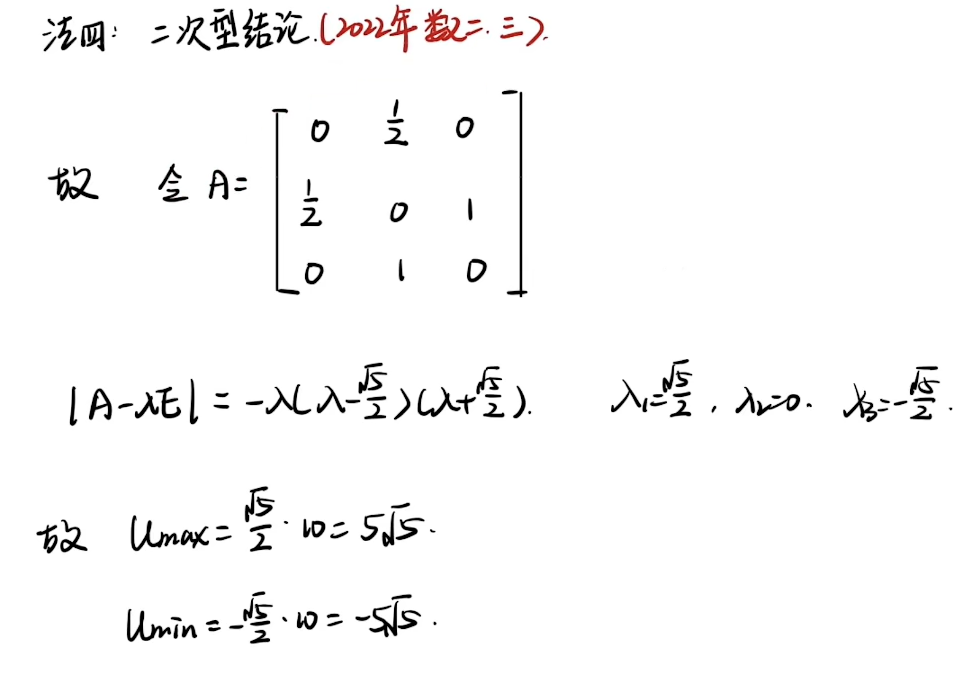 法四: 二次型结论.(2022年数二.三).
故 令 A= [ 0 1/2 0
1/2 0 1
0 1 0 ]
|A-λE| = -λ(λ-√5/2)(λ+√5/2). λ₁=√5/2, λ₂=0. λ₃=-√5/2.
故 Umax = √5/2 · 10 = 5√5.
Umin = -√5/2 · 10 = -5√5.